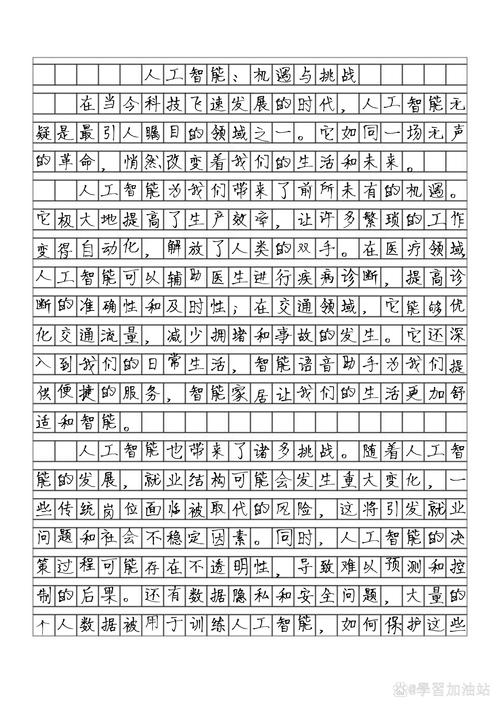 人工智能：机遇与挑战
在当今科技飞速发展的时代，人工智能无
疑是最引人瞩目的领域之一。它如同一场无声
的革命，悄然改变着我们的生活和未来。
人工智能为我们带来了前所未有的机遇。
它极大地提高了生产效率，让许多繁琐的工作
变得自动化，解放了人类的双手。在医疗领域，
人工智能可以辅助医生进行疾病诊断，提高诊
断的准确性和及时性；在交通领域，它能够优
化交通流量，减少拥堵和事故的发生。它还深
入到我们的日常生活，智能语音助手为我们提
供便捷的服务，智能家居让我们的生活更加舒
适和智能。
人工智能也带来了诸多挑战。随着人工智
能的发展，就业结构可能会发生重大变化，一
些传统岗位面临被取代的风险，这将引发就业
问题和社会不稳定因素。同时，人工智能的决
策过程可能存在不透明性，导致难以预测和控
制的后果。还有数据隐私和安全问题，大量的
个人数据被用于训练人工智能，如何保护这些
@學習加油站